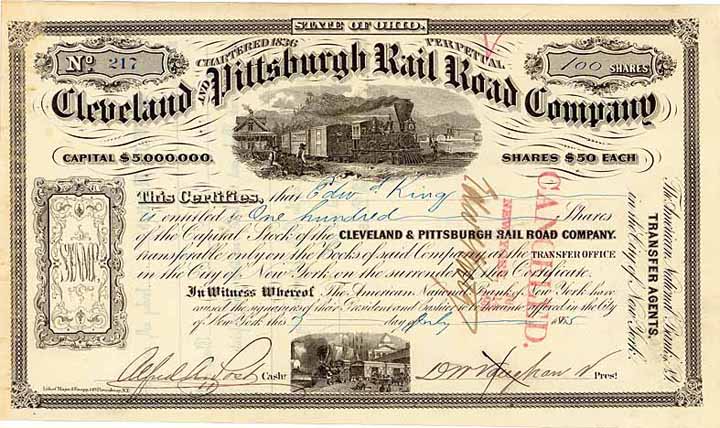 STATE OF OHIO.
CHARTERED 1836 PERPETUAL
No 217
100 SHARES
Cleveland AND Pittsburgh Rail Road Company
CAPITAL $5,000,000.
SHARES $50 EACH
This Certifies, that Edwd King
is entitled to One hundred Shares
of the Capital Stock of the CLEVELAND & PITTSBURGH RAIL ROAD COMPANY.
transferable only on the Books of said Company, at the TRANSFER OFFICE
in the City of New York on the surrender of this Certificate.
In Witness Whereof The American National Bank of New York have
caused the signatures of their President and Cashier to be hereunto affixed in the City
of New York this 7 day of July 1865
Cashr
Pres!
STAMP
CANCELLED.
NEW YORK
The American National Bank of
in the City of New York.
TRANSFER AGENTS.
Lith. of Major & Knapp, 449 Broadway, N.Y.